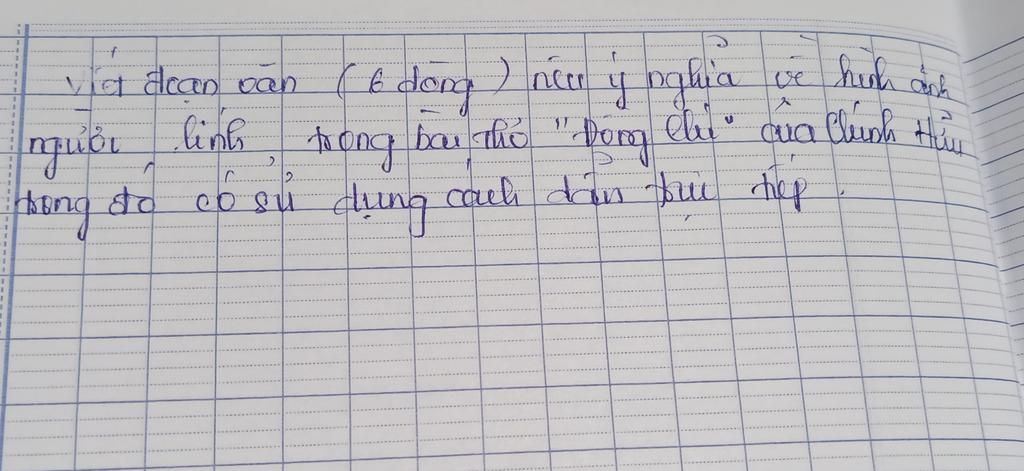 Viết đoạn văn (6 dòng) nêu ý nghĩa về hình ảnh
người lính trong bài thơ "Đồng chí" của Chính Hữu
trong đó có sử dụng cách dẫn trực tiếp.